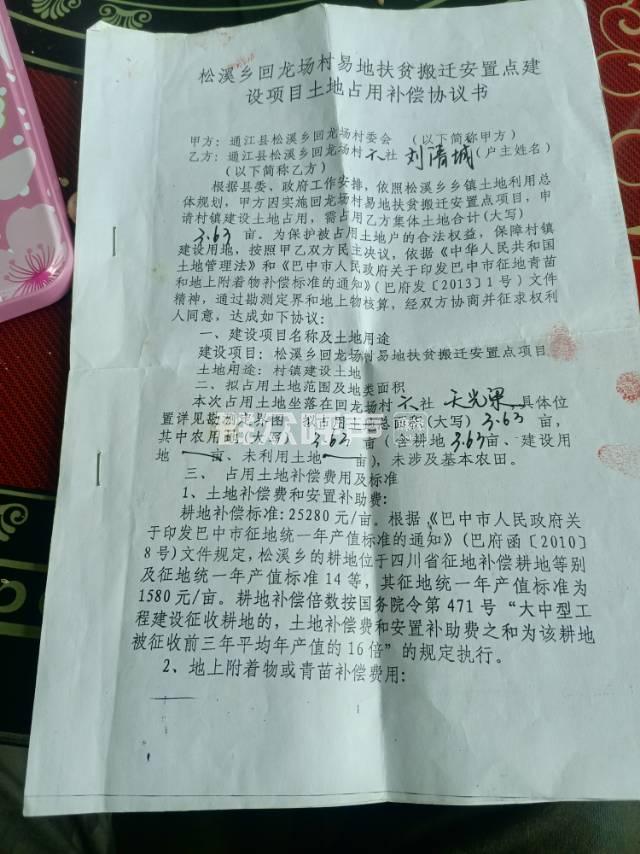 松溪乡回龙场村易地扶贫搬迁安置点建
设项目土地占用补偿协议书
甲方：通江县松溪乡回龙场村委会 （以下简称甲方）
乙方：通江县松溪乡回龙场村六社 刘清城（户主姓名）
（以下简称乙方）
根据县委、政府工作安排，依照松溪乡乡镇土地利用总
体规划，甲方因实施回龙场村易地扶贫搬迁安置点项目，申
请村镇建设土地占用，需占用乙方集体土地合计(大写)
3.63 亩。为保护被占用土地户的合法权益，保障村镇
建设用地，按照甲乙双方民主决议，依据《中华人民共和国
土地管理法》和《巴中市人民政府关于印发巴中市征地青苗
和地上附着物补偿标准的通知》（巴府发〔2013〕1号）文件
精神，通过勘测定界和地上物核算，经双方协商并征求权利
人同意，达成如下协议：
一、建设项目名称及土地用途
建设项目：松溪乡回龙场村易地扶贫搬迁安置点项目
土地用途：村镇建设土地
二、拟占用土地范围及地类面积
本次占用土地坐落在回龙场村六社 具体位
置详见勘测定界图。拟占用土地总面积(大写) 3.63 亩，
其中农用地 3.63 亩（含耕地3.63亩、建设用
地 亩、未利用土地 亩），未涉及基本农田。
三、占用土地补偿费用及标准
1、土地补偿费和安置补助费：
耕地补偿标准：25280元/亩。根据《巴中市人民政府关
于印发巴中市征地统一年产值标准的通知》（巴府函〔2010〕
8号)文件规定，松溪乡的耕地位于四川省征地补偿耕地等别
及征地统一年产值标准14等，其征地统一年产值标准为
1580元/亩。耕地补偿倍数按国务院令第471号“大中型工
程建设征收耕地的，土地补偿费和安置补助费之和为该耕地
被征收前三年平均年产值的16倍”的规定执行。
2、地上附着物或青苗补偿费用：
1
群众呼声